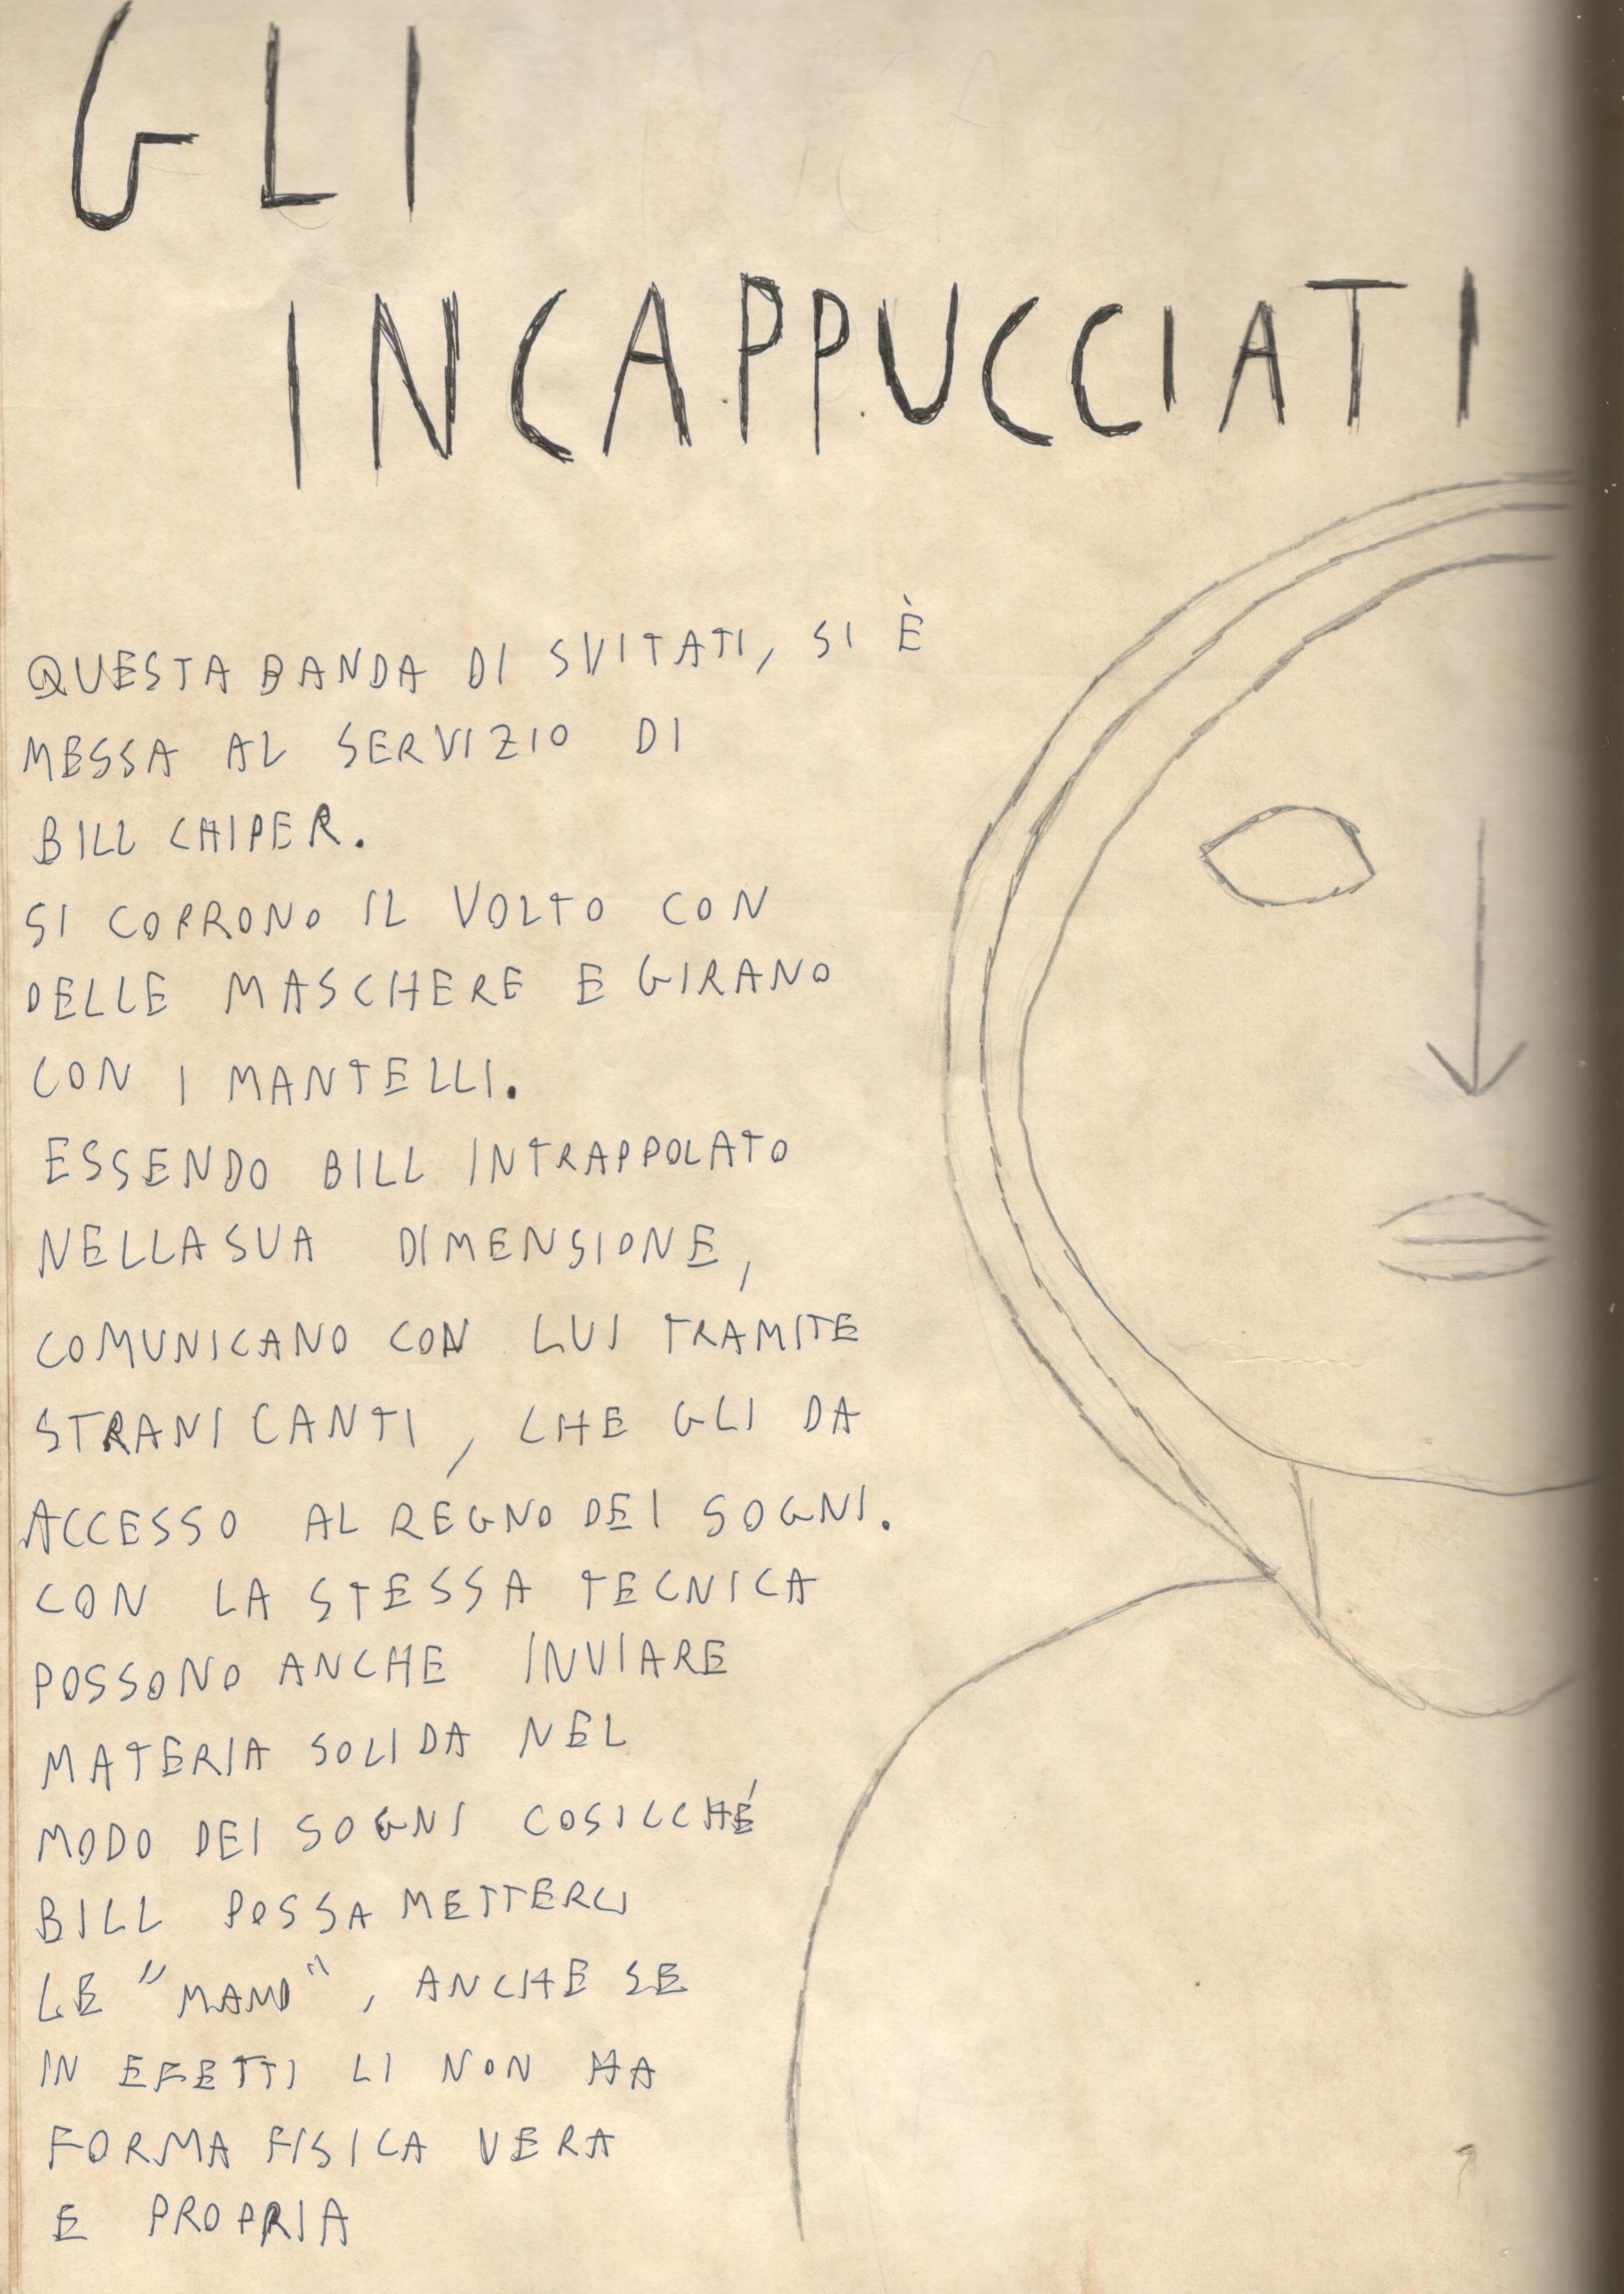 GLI
INCAPPUCCIATI
QUESTA BANDA DI SVITATI, SI È
MESSA AL SERVIZIO DI
BILL CHIPER.
SI COPRONO IL VOLTO CON
DELLE MASCHERE E GIRANO
CON I MANTELLI.
ESSENDO BILL INTRAPPOLATO
NELLA SUA DIMENSIONE,
COMUNICANO CON LUI TRAMITE
STRANI CANTI, CHE GLI DA
ACCESSO AL REGNO DEI SOGNI.
CON LA STESSA TECNICA
POSSONO ANCHE INVIARE
MATERIA SOLIDA NEL
MODO DEI SOGNI COSICCHÉ
BILL POSSA METTERCI
LE "MANI", ANCHE SE
IN EFETTI LI NON HA
FORMA FISICA VERA
E PROPRIA